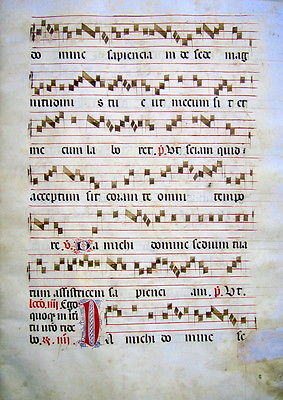 do mine sapiencia m de sede mag
nitudini s tu e ut mecum si t et
me cum la bo ret. p. Ut sciam quid
acceptum sit coram te omni tempo
re. V. Da michi domine sedium tua
rum assistricem sa pienci am. p. Ut.
lco. iiii. Ergo
quoque misti
tu
bo. R. iiii. Da michi do mine se